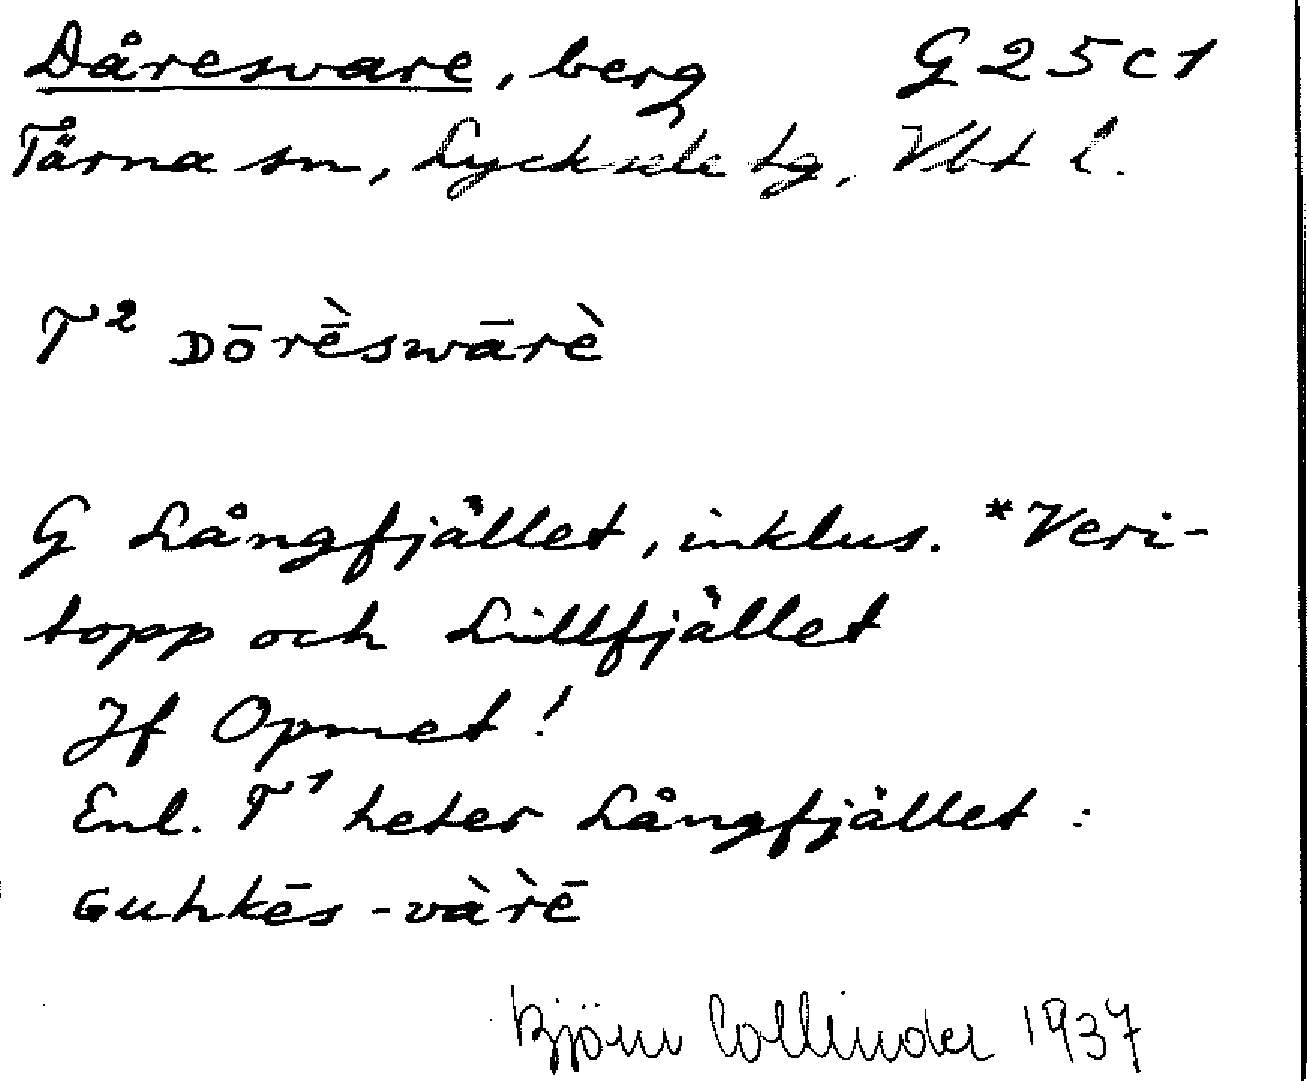 Dåresvare, berg G 25 c 1
Tärna sn, Lycksele lg, Vbt l.
T² Dōrḕswārè
G Långfjället, inklus. *Veri-
topp och Lillfjället
Jf Opmet!
Enl. T¹ heter Långfjället:
Guhkēs-vàr̀ē
Björn Collinder 1937